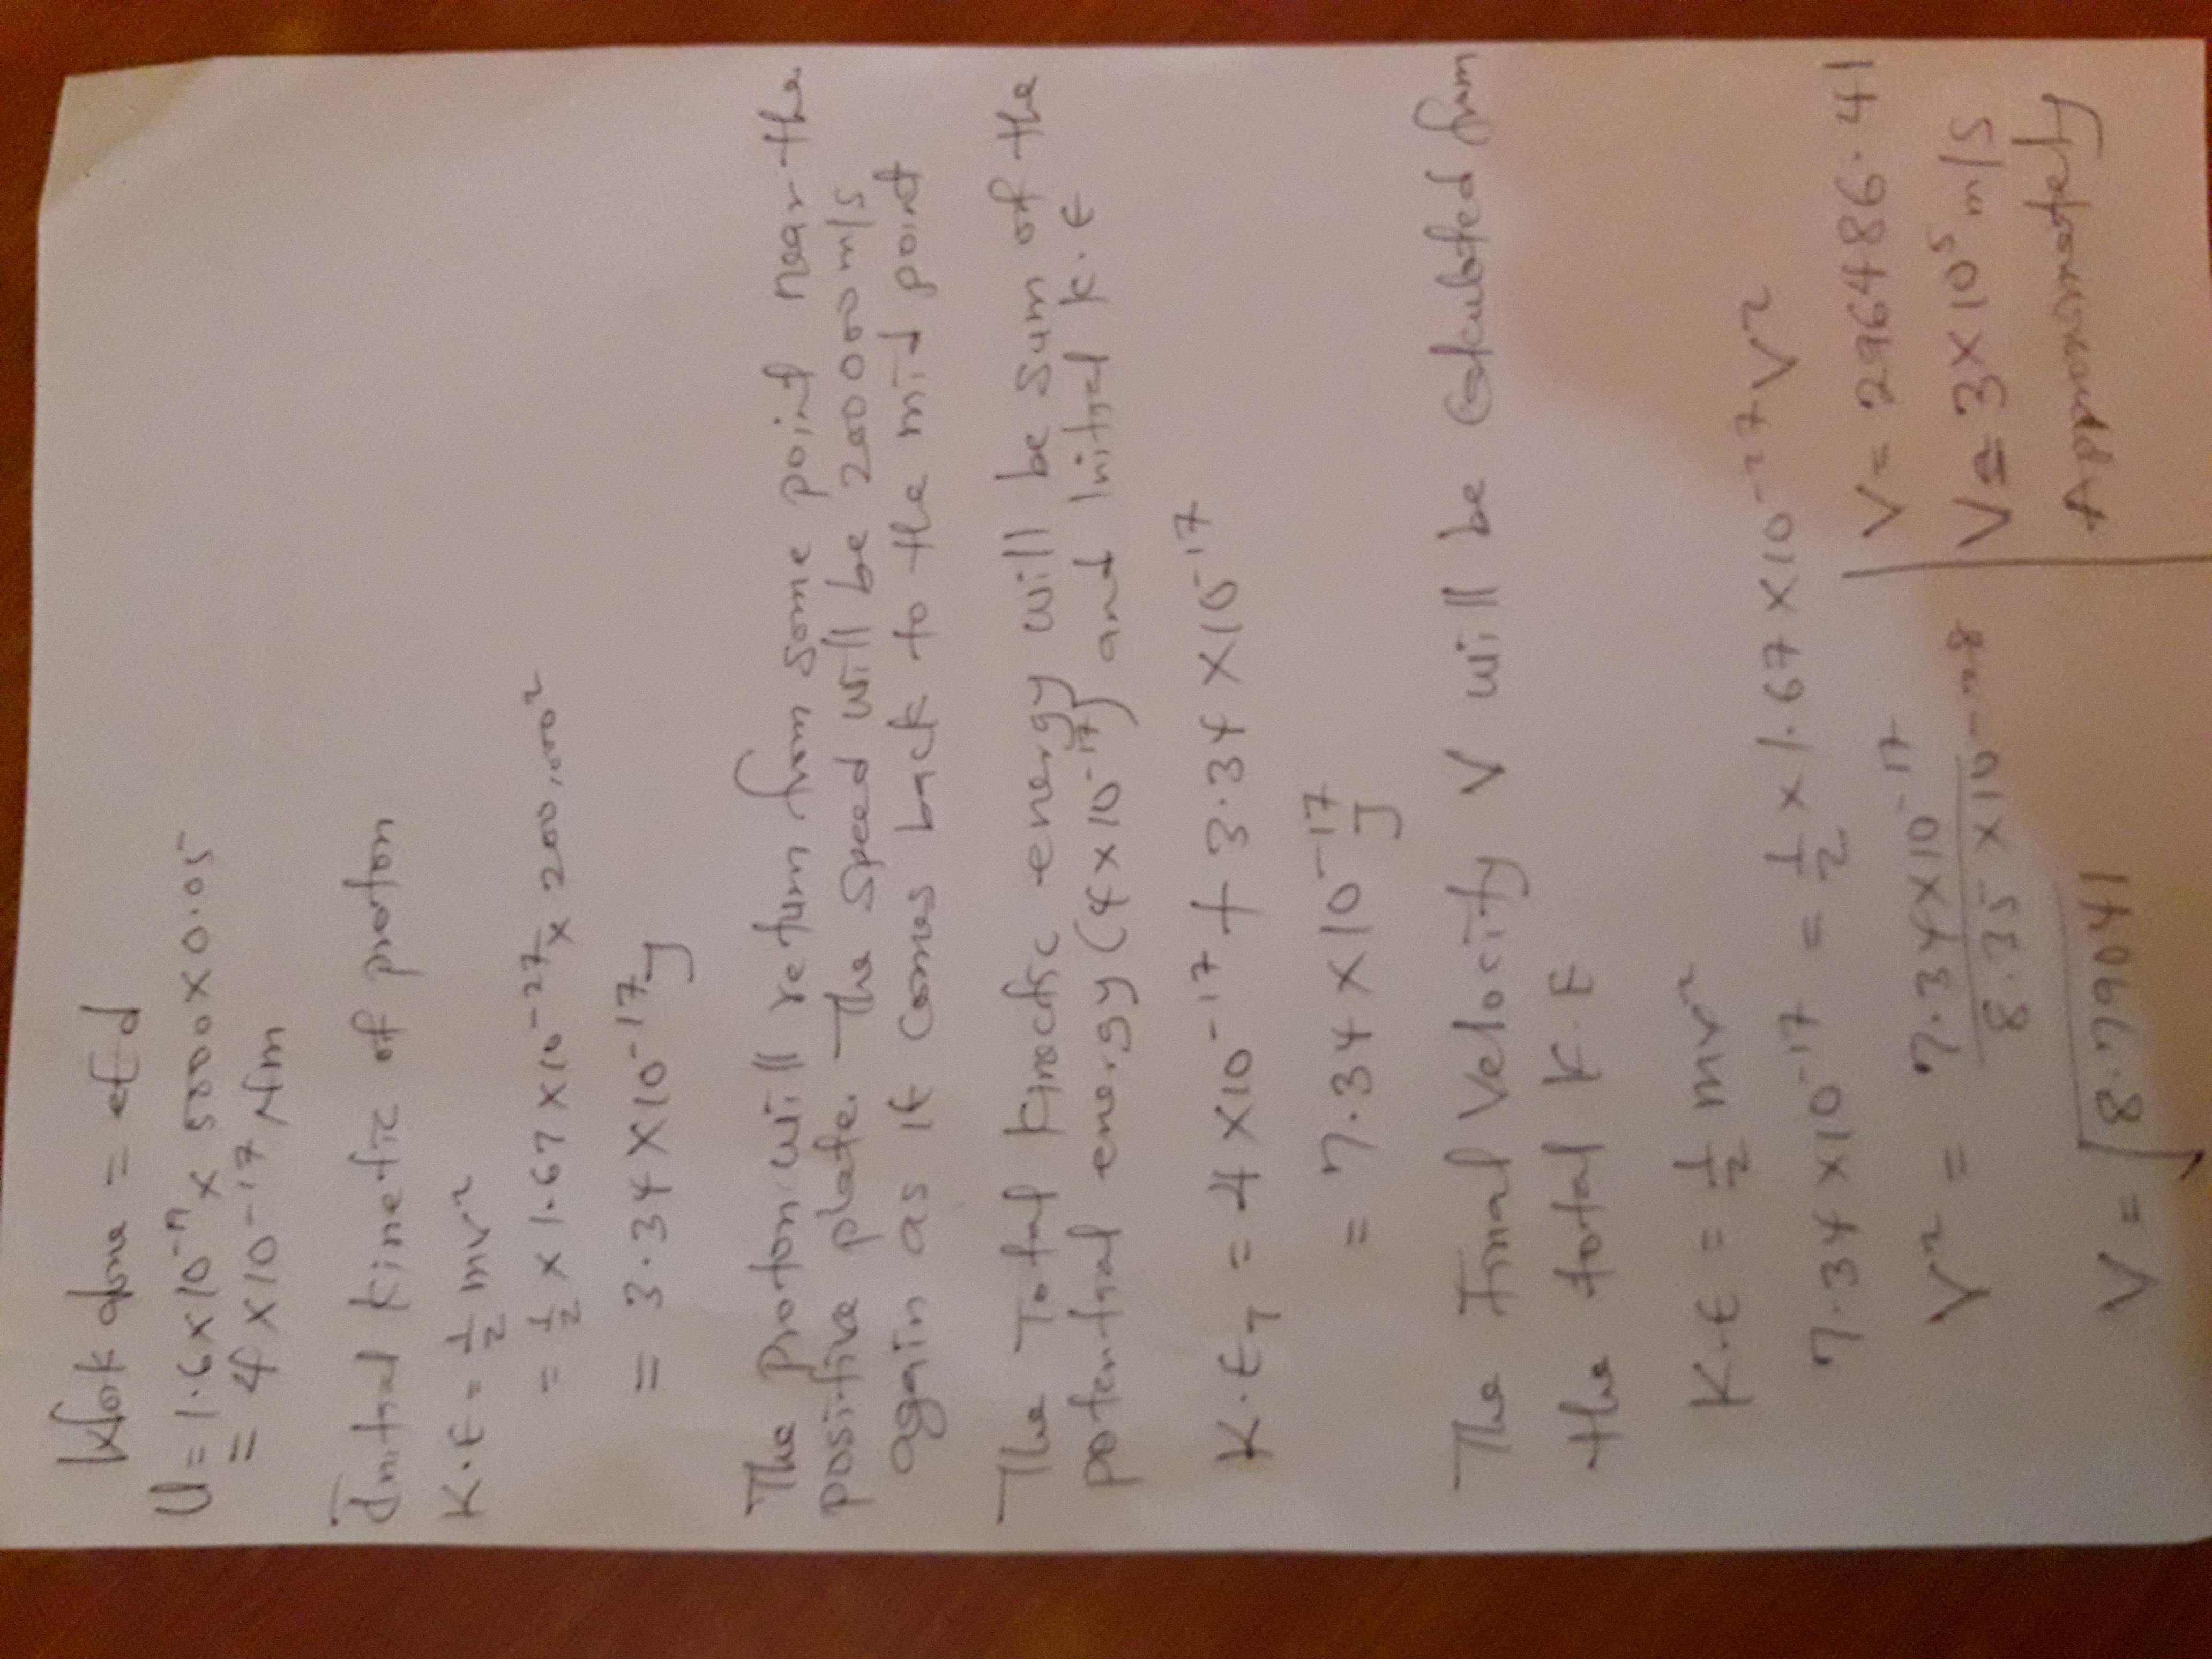 Work done = eEd
U = 1.6 x 10⁻¹⁹ x 5000 x 0.05
= 4 x 10⁻¹⁷ Nm
Initial kinetic of proton
K.E = ½ mv²
= ½ x 1.67 x 10⁻²⁷ x 200,000²
= 3.34 x 10⁻¹⁷ J
The proton will return from some point near the
positive plate. The speed will be 200000 m/s
again as it comes back to the mid point
The Total kinetic energy will be sum of the
potential energy (4 x 10⁻¹⁷) and initial K.E
K.E_T = 4 x 10⁻¹⁷ + 3.34 x 10⁻¹⁷
= 7.34 x 10⁻¹⁷ J
The Final velocity V will be calculated from
the total K.E
K.E = ½ mv²
7.34 x 10⁻¹⁷ = ½ x 1.67 x 10⁻²⁷ V²
V² = 7.34 x 10⁻¹⁷ / 8.35 x 10⁻²⁸
V = √8.79041
V = 296486.41
V = 3 x 10⁵ m/s
Approximately